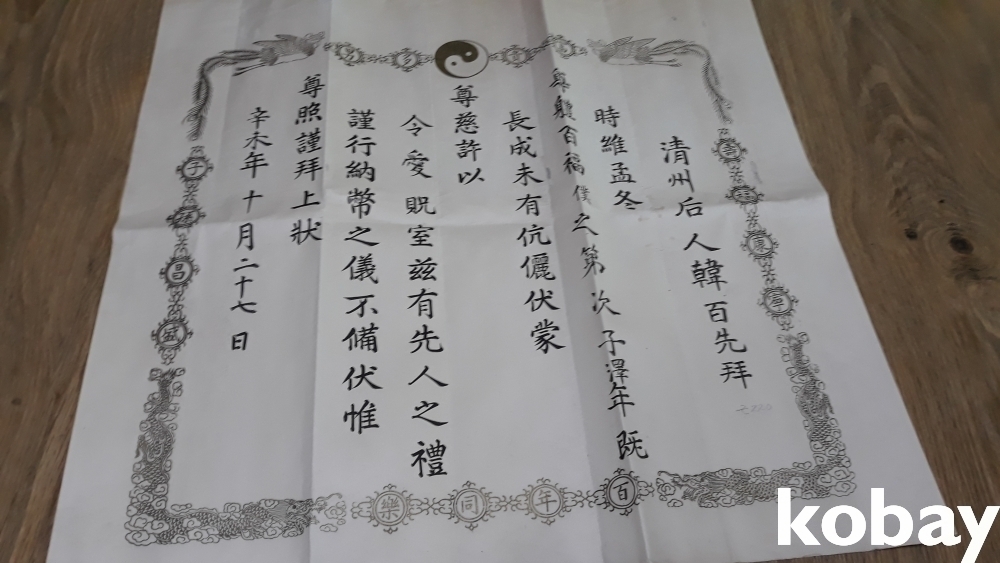 清州后人韓百先拜
時維孟冬
尊體百福僕之第次子澤年既
長成未有伉儷伏蒙
尊慈許以
令愛貺室玆有先人之禮
謹行納幣之儀不備伏惟
尊照謹拜上狀
辛未年十月二十七日
壽福康寧
子孫昌盛
百年同樂
kobay